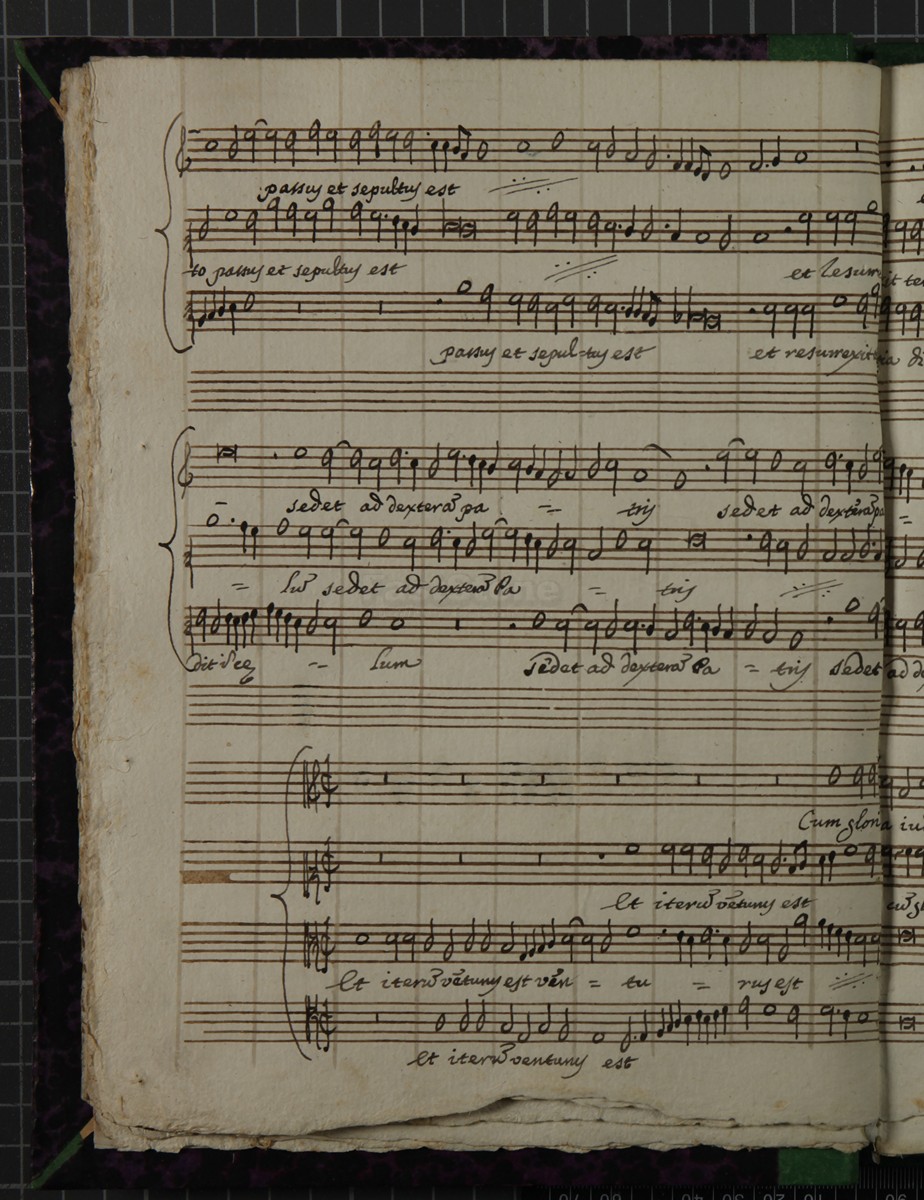 passus et sepultus est
to passus et sepultus est et resurr
passus et sepul=tus est et resurrexit
sedet ad dexterã pa = tris sedet ad dexterã pa
= lũ sedet ad dexterã Pa = tris
dit i Cę = lum sedet ad dexterã Pa = tris sedet
Cum gloria
Et iterũ vẽturus est
Et iterũ vẽturus est vẽn = tu = rus est
Et iterũ venturus est